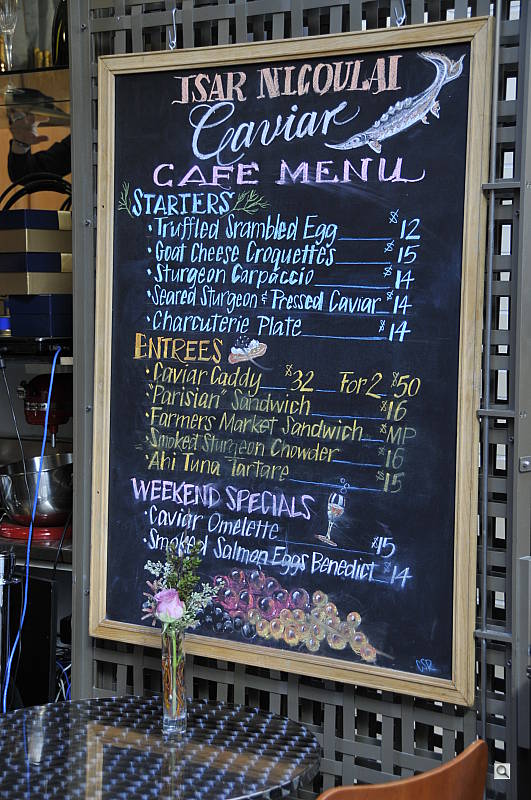 TSAR NICOULAI
Caviar
CAFE MENU
STARTERS
• Truffled Srambled Egg $12
• Goat Cheese Croquettes $15
• Sturgeon Carpaccio $14
• Seared Sturgeon & Pressed Caviar $14
• Charcuterie Plate $14
ENTREES
• Caviar Caddy $32 For 2 $50
• "Parisian" Sandwich $16
• Farmers Market Sandwich $MP
• Smoked Sturgeon Chowder $16
• Ahi Tuna Tartare $15
WEEKEND SPECIALS
• Caviar Omelette $15
• Smoked Salmon Eggs Benedict $14
CSR